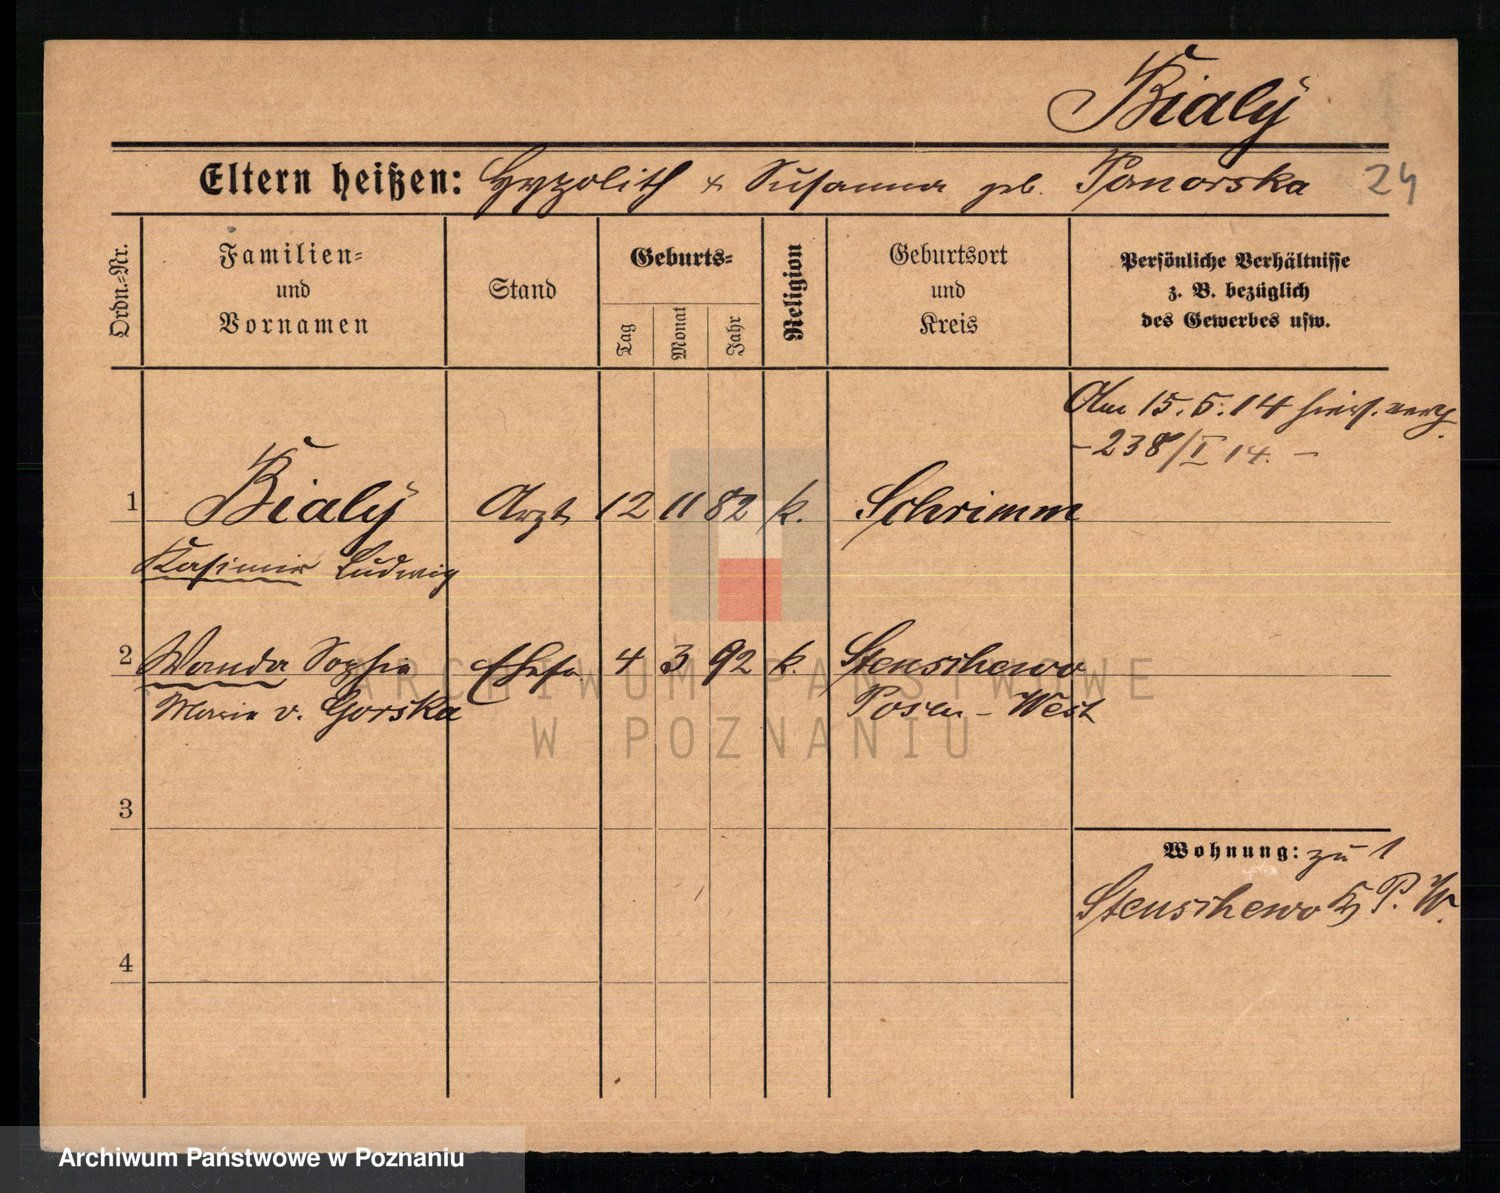 Bialÿ
Eltern heißen: Hypolith + Susanna geb. Panorska 24
Ordn.-Nr.
Familien-
und
Vornamen
Stand
Geburts-
Tag
Monat
Jahr
Religion
Geburtsort
und
Kreis
Persönliche Verhältnisse
z. B. bezüglich
des Gewerbes usw.
Am 15. 5. 14 hiers. verz.
-238/I 14. -
1 Bialÿ Arzt 12 11 82 k. Schrimm
Kasimir Ludwig
2 Wanda Sophie Ehefr. 4 3 92 k. Stenschewo
Marie v. Gorska Posen-West
3
Wohnung: zu 1
Stenschewo P. W.
4
ARCHIWUM PAŃSTWOWE
W POZNANIU
Archiwum Państwowe w Poznaniu